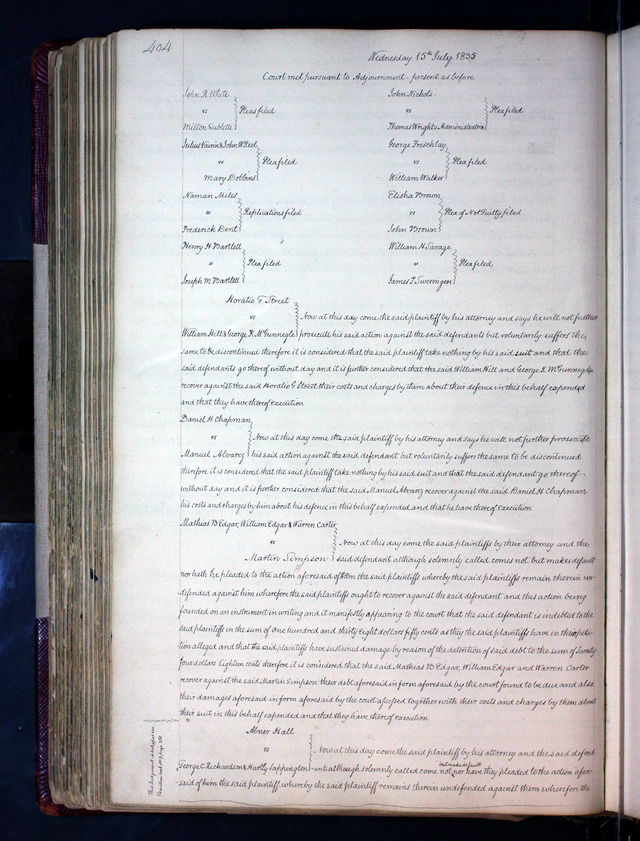 404
Wednesday 15th July 1835
Court met pursuant to Adjournment - present as before
John R White
vs
Milton Sublette
Pleas filed
John Nichols
vs
Thomas Wrights Administrator
Plea filed
Julius & John W Reel
vs
Mary Dobbins
Plea filed
George Freschlay
vs
William Walker
Plea filed
Naman Miles
vs
Frederick Dent
Replications filed
Elisha Brown
vs
John Brown
Plea of Not Guilty filed
Henry H Bartlett
"
Joseph M Bartlett
Plea filed
William H Savage
"
James T Sweringen
Plea filed
Horatio G Street
vs
William Hill & George K McGunnegle
Now at this day come the said plaintiff by his attorney and says he will not further
prosecute his said action against the said defendants but voluntarily suffers the
same to be discontinued therefore it is considered that the said plaintiff take nothing by his said suit and that the
said defendants go thereof without day and it is further considered that the said William Hill and George K McGunnegle
recover against the said Horatio G Street their costs and charges by them about their defence in this behalf expended
and that they have thereof execution
Daniel H Chapman
vs
Manuel Alvarez
Now at this day come the said plaintiff by his attorney and says he will not further prosecute
his said action against the said defendant but voluntarily suffers the same to be discontinued
therefore it is considered that the said plaintiff take nothing by his said suit and that the said defendant go thereof
without day and it is further considered that the said Manuel Alvarez recover against the said Daniel H Chapman
his costs and charges by him about his defence in this behalf expended and that he have thereof execution
Mathias B Edgar, William Edgar & Warren Carter
vs
Martin Simpson
Now at this day come the said plaintiffs by their attorney and the
said defendant although solemnly called comes not but makes default
nor hath he pleaded to the action aforesaid of them the said plaintiffs whereby the said plaintiffs remain therein un-
defended against him wherefore the said plaintiffs ought to recover against the said defendant and this action being
founded on an instrument in writing and it manifestly appearing to the court that the said defendant is indebted to the
said plaintiffs in the sum of one hundred and thirty eight dollars fifty cents as they the said plaintiffs have in their peti-
tion alleged, and that the said plaintiffs have sustained damage by reason of the detention of said debt to the sum of Twenty
four dollars Eighteen cents therefore it is considered that the said Mathias B Edgar, William Edgar and Warren Carter
recover against the said Martin Simpson their debt aforesaid in form aforesaid by the court found to be due and also
their damages aforesaid in form aforesaid by the court assessed together with their costs and charges by them about
their suit in this behalf expended and that they have thereof execution
Abner Hall
vs
George C Richardson & Hartly Sappington
Now at this day come the said plaintiff by his attorney and the said defend-
ants although solemnly called come not but make default nor have they pleaded to the action afore-
said of him the said plaintiff whereby the said plaintiff remains therein undefended against them wherefore the
This Judgment is satisfied see